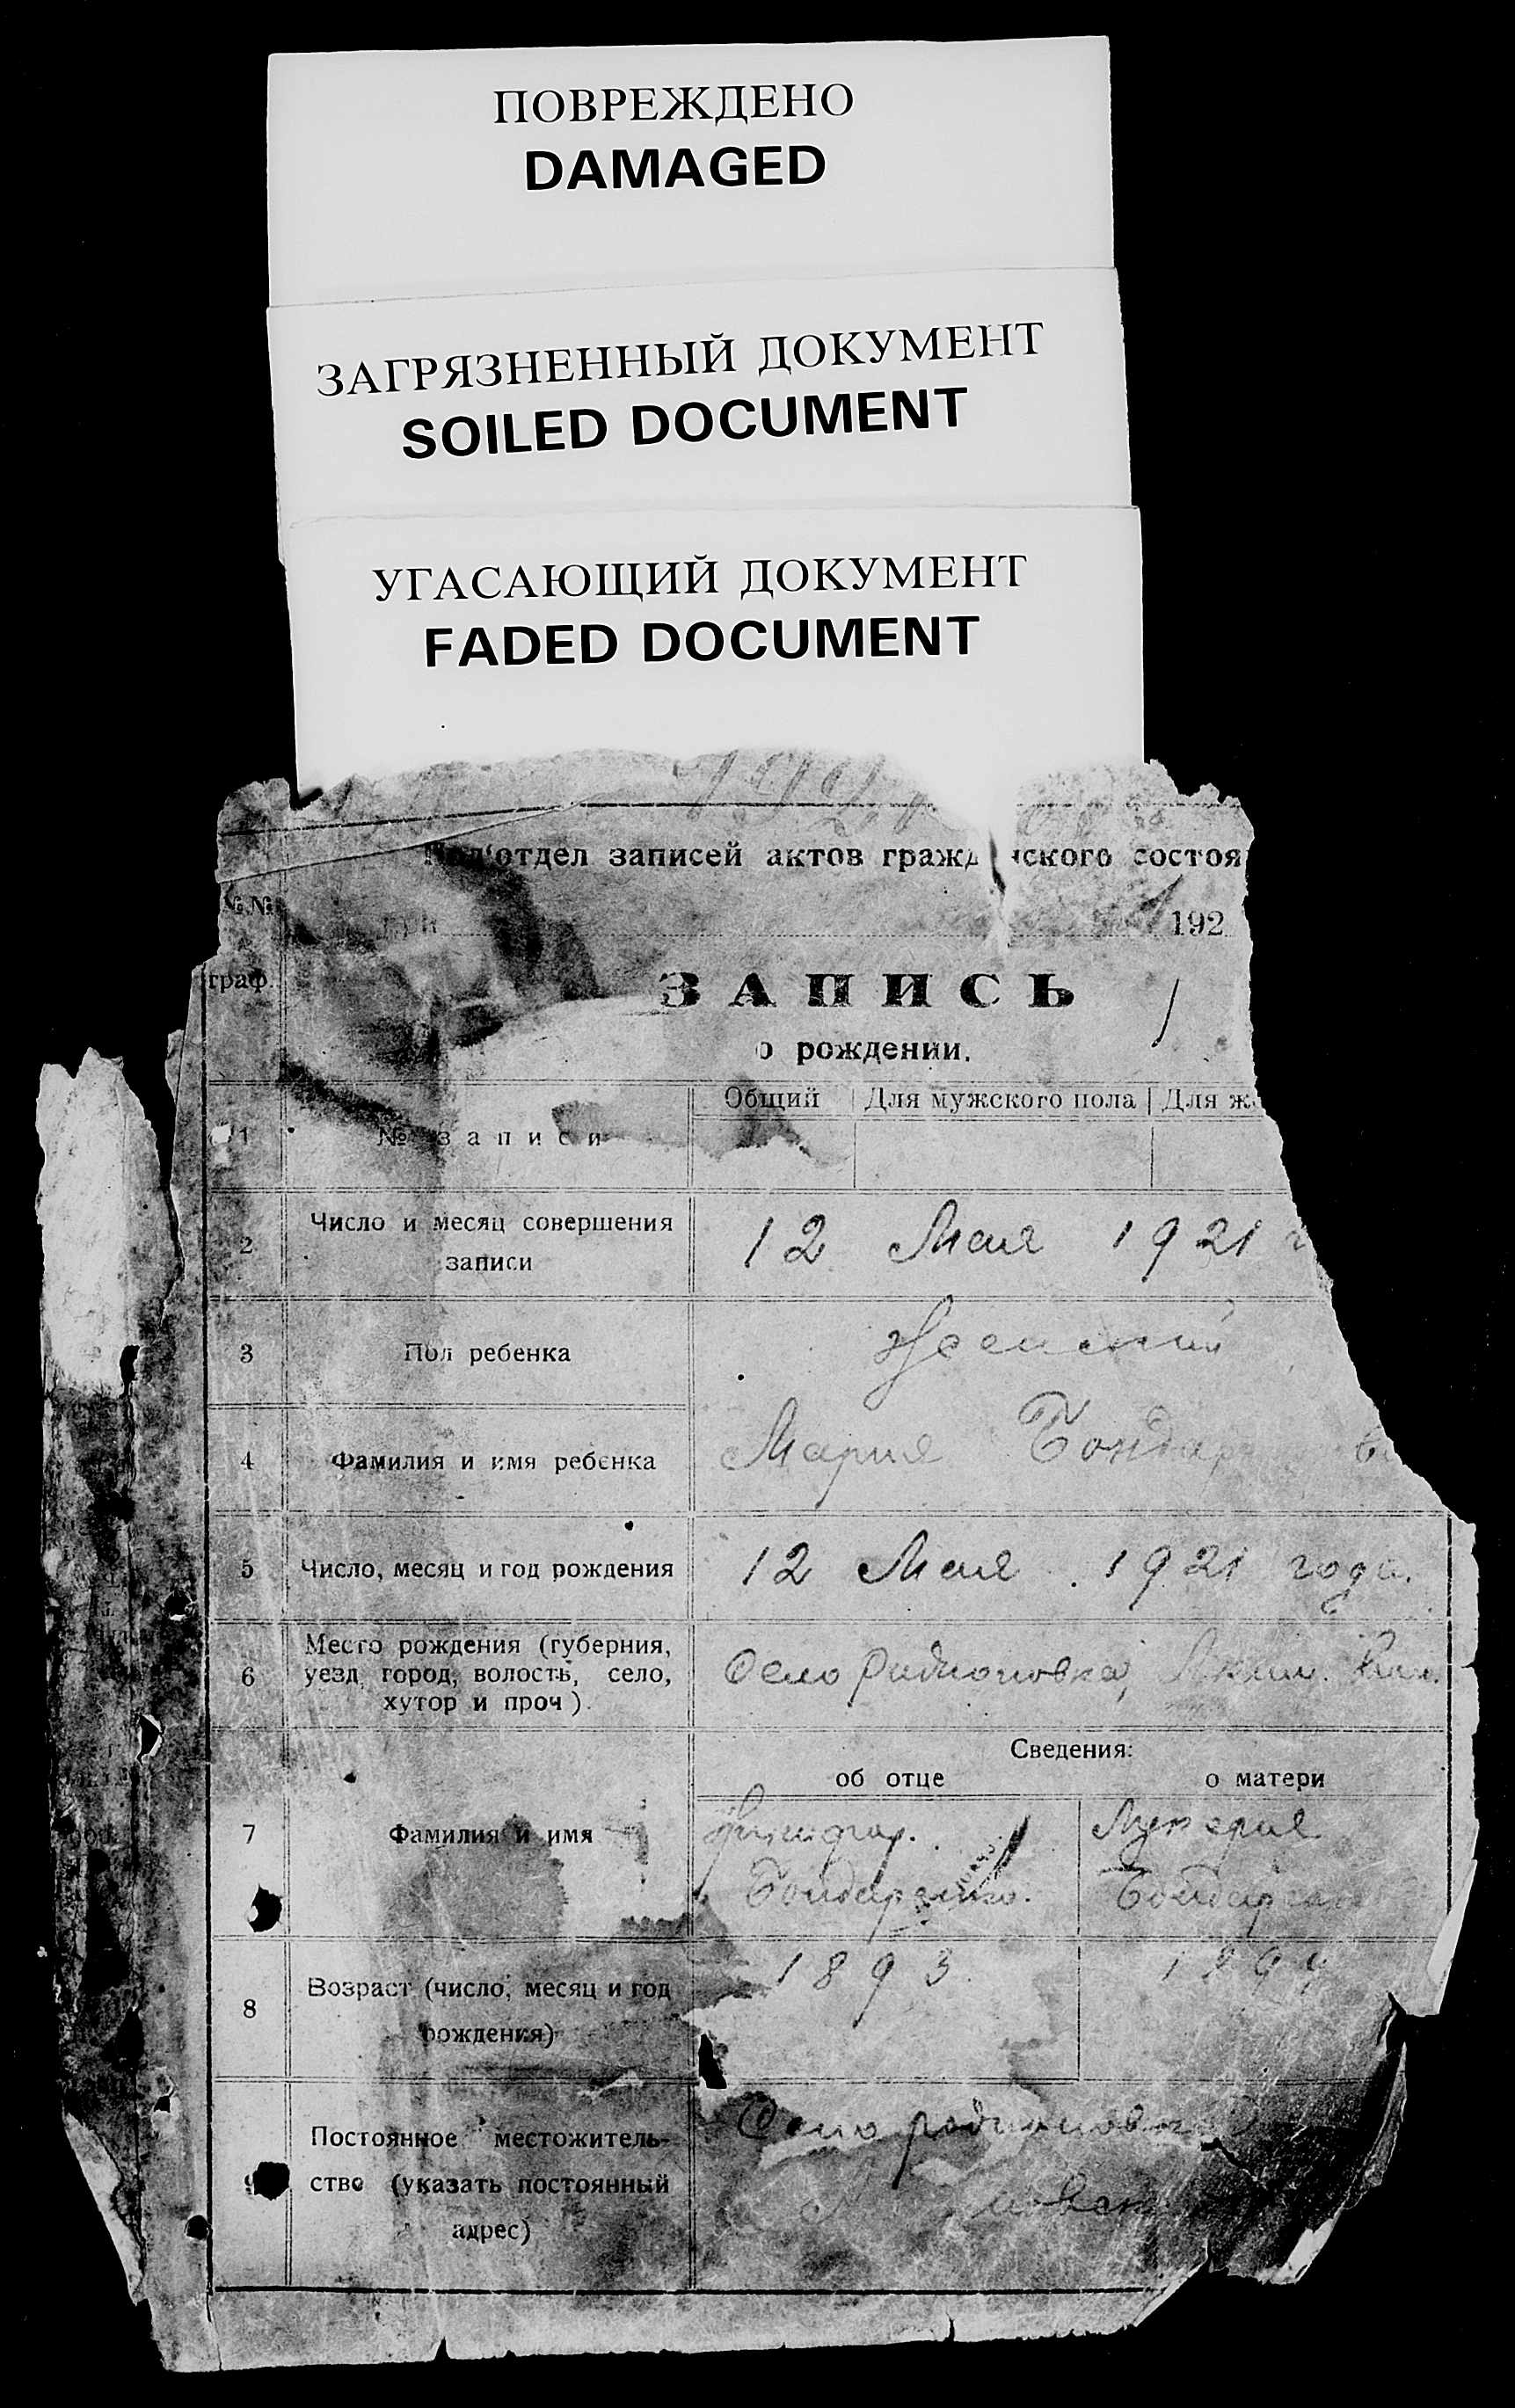 ПОВРЕЖДЕНО
DAMAGED
ЗАГРЯЗНЕННЫЙ ДОКУМЕНТ
SOILED DOCUMENT
УГАСАЮЩИЙ ДОКУМЕНТ
FADED DOCUMENT
192
Под'отдел записей актов гражд нского состоя
№№
192
граф.
ЗАПИСЬ
о рождении.
Общий Для мужского пола Для ж
1 № записи
2 Число и месяц совершения
записи
12 Мая 1921 г
3 Пол ребенка Женский
4 Фамилия и имя ребенка Мария Бондар
5 Число, месяц и год рождения 12 Мая 1921 года.
6 Место рождения (губерния,
уезд, город, волость, село,
хутор и проч).
Село Родионовка, Аким. Вол.
Сведения:
об отце о матери
7 Фамилия и имя
Лукерия
Бондаренко. Бондаренко
8 Возраст (число, месяц и год
рождения)
1893. 1894
9 Постоянное местожитель-
ство (указать постоянный
адрес)
Село Родионовка